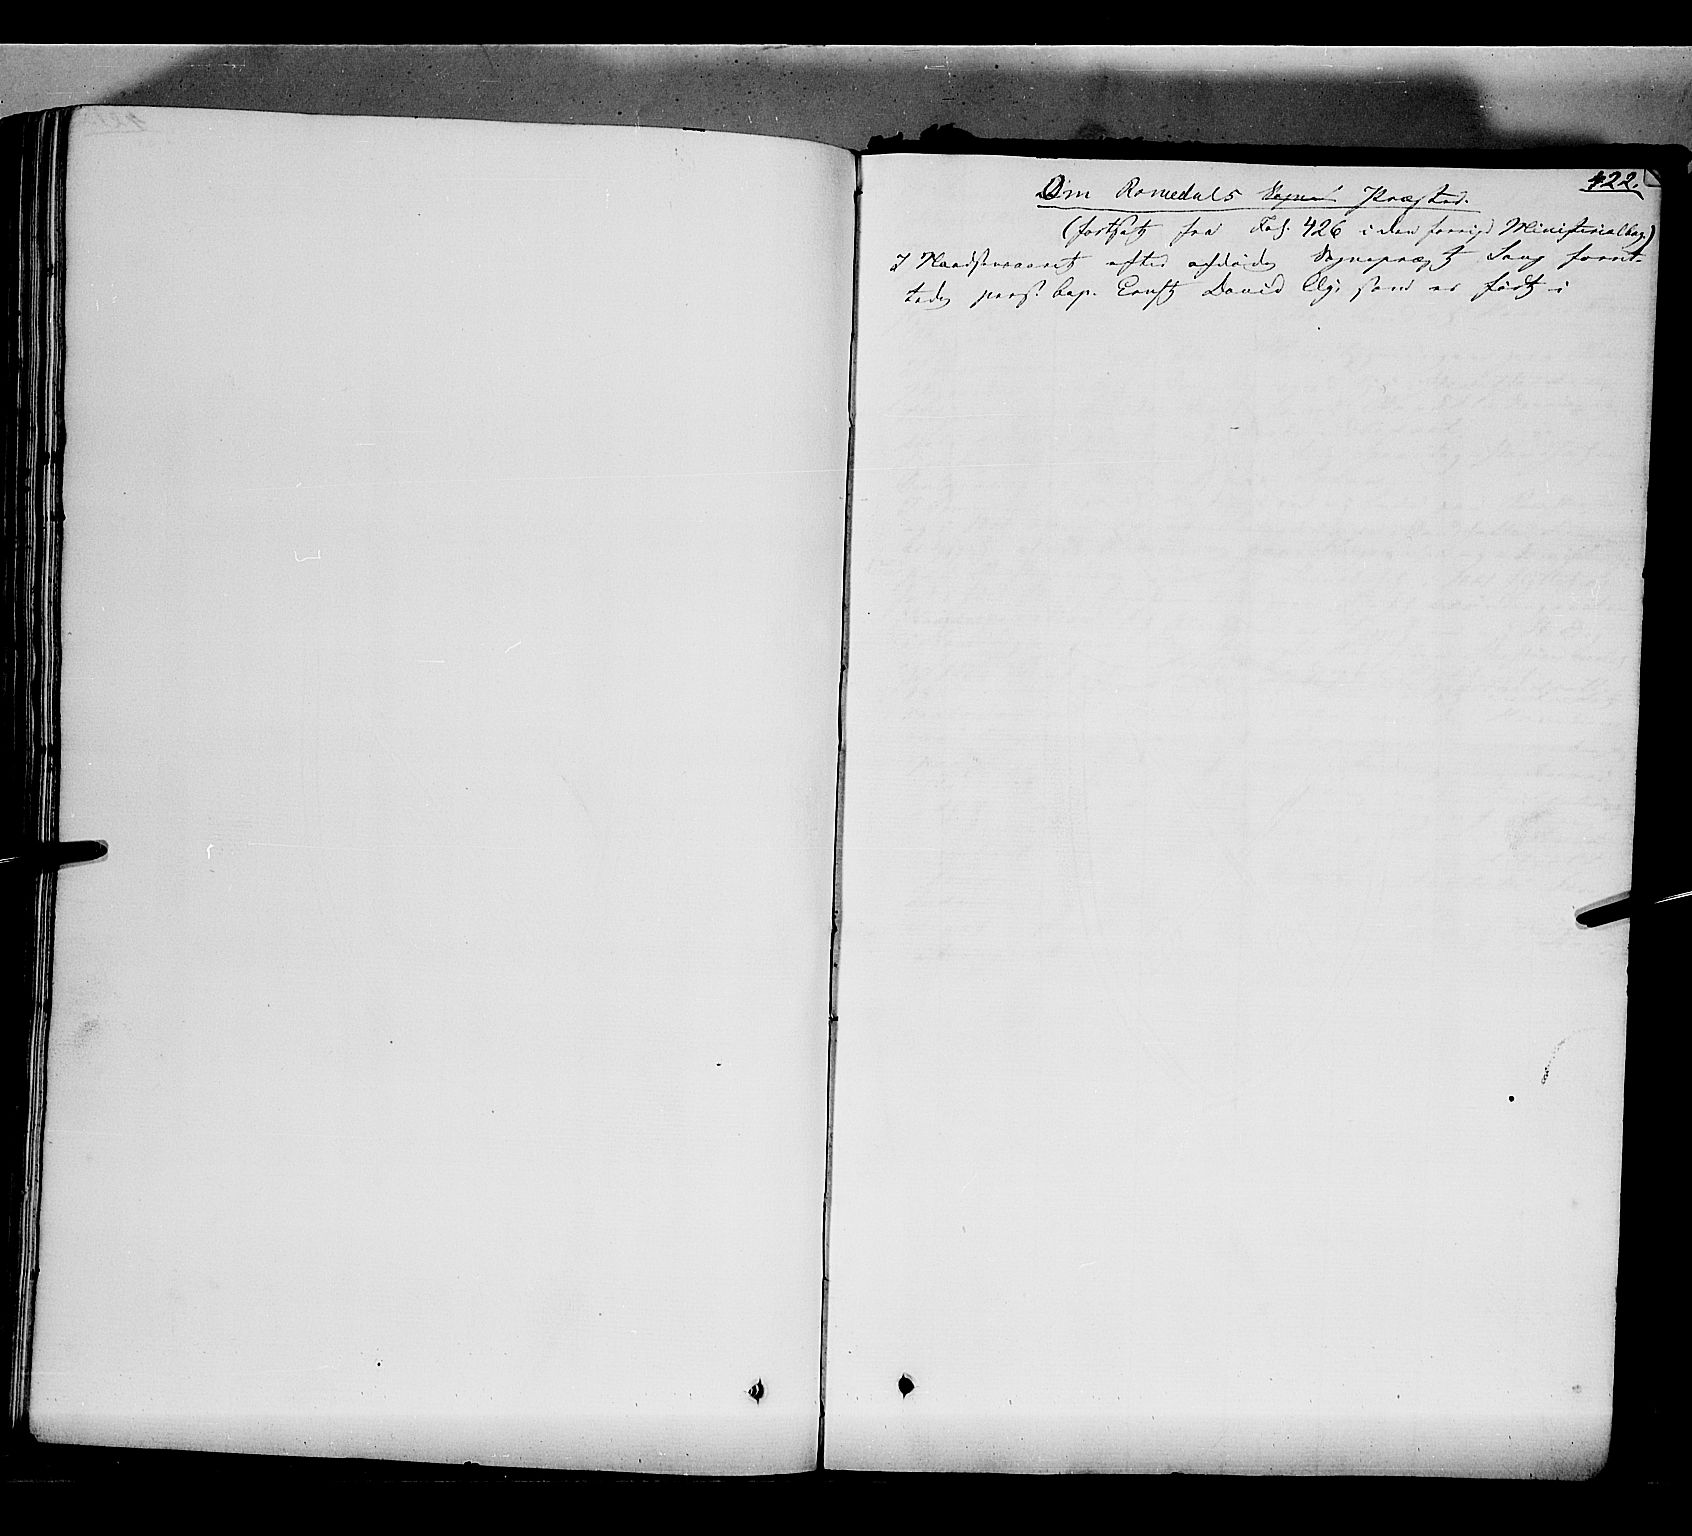 422.
Om Romedals Sogne Præster.
(fortsat fra Fol. 426 i den forrige Ministerialbog)
I Naadsensaaret efter afdøde Sognepræst Lang forret-
tede pers. Cap. Ernst David som er født i